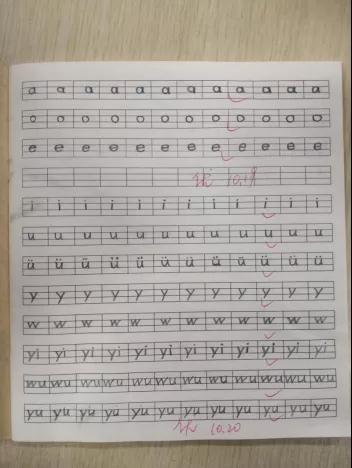 a a a a a a a a a a a a
o o o o o o o o o o o o
e e e e e e e e e e e e
10.19
i i i i i i i i i i i i
u u u u u u u u u u u u
ü ü ü ü ü ü ü ü ü ü ü ü
y y y y y y y y y y y y
w w w w w w w w w w w w
yi yi yi yi yi yi yi yi yi yi yi yi
wu wu wu wu wu wu wu wu wu wu wu wu
yu yu yu yu yu yu yu yu yu yu yu yu
10.20